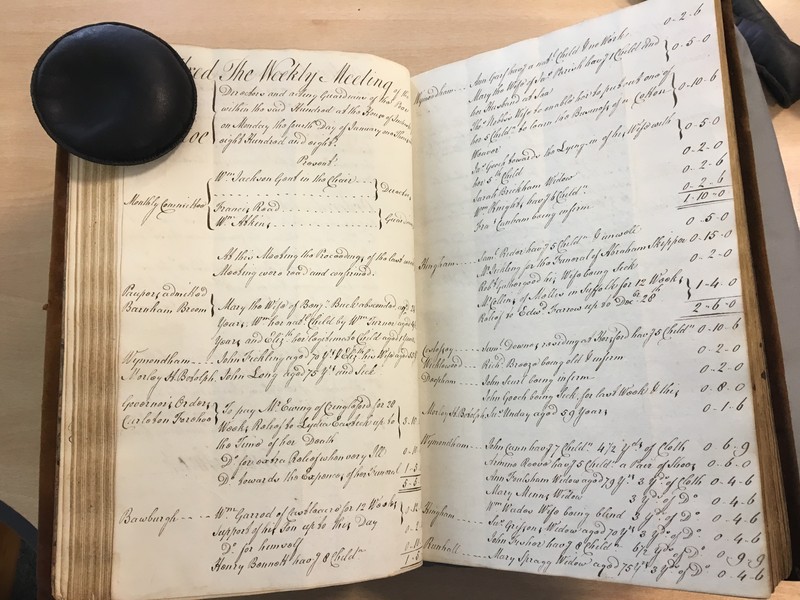 The Weekly Meeting of the
Directors and acting Guardians of the Poor
within the said Hundred at the House of
on Monday the fourth Day of January one Thous
eight Hundred and eight
Present
Wm Jackson Gent in the Chair
Monthly Committee
Francis Read
Wm Atkins
At this Meeting the Proceedings of the last
Meeting were read and confirmed.
Paupers admitted
Barnham Broom Mary the Wife of Benjn Buck absconded aged
Years, Wm her natl Child by Wm Turner aged
Years and Elizth her legitimate Child aged
Wymondham John Feckling aged 70 Yrs & Elizth his Wife aged
Morley St Botolph John Long aged 75 Yrs and Sick
Governor's Orders
Carleton Forehoe To pay Mr Ewing of Cringleford for 28
Weeks Relief to Lydia up to
the Time of her Death
Do for extra Relief when very Ill
Do towards the Expences of her Funeral
Bawburgh Wm Garrod of for 12 Weeks
Support of his Son up to this Day
Do for himself
Henry Bennett havg 8 Childn
0-2-6
Wymondham Ann a natl Child One Week
Mary the Wife of Jas Parish havg 1 Child and
her Husband at Sea 0-5-0
Thos Wife to enable her to put out one of
her 5 Childn to learn the Business of a Cotton
Weaver 0-10-6
Jas Gooch towards the Lying in of his Wife with
her 5th Child 0-5-0
Sarah Brickham Widow 0-2-0
Wm Knights havg 6 Childn 0-2-6
Fras Lanham being infirm 0-2-6
1-10-0
Hingham Saml Reder havg 5 Childn & unwell 0-5-0
Mr for the Funeral of Abraham Skipper 0-15-0
Robt his Wife being Sick 0-2-0
Mr Collins of in Suffolk for 12 Weeks
Relief to Edwd Farrow up to Decr 28th 1-4-0
2-6-0
Costessey Jams Downes residing at Horsford havg 5 Childn 0-10-6
Welborne Richd Breeze being old & infirm 0-2-0
Deopham John being infirm 0-2-0
John Gooch being Sick, for last Week & this 0-8-0
Morley St Botolph Jas Unday aged 59 Years 0-1-6
Wymondham John Cann havg 7 Childn 4 1/2 Yds of Cloth 0-6-9
havg 5 Childn a Pair of Shoes 0-6-0
Ann Widow aged 79 Yrs 3 Yds of Cloth 0-4-6
Mary Minns Widow 3 Yds of Do 0-4-6
Wm Wife being blind 3 Yds of Do 0-4-6
Hingham Widow aged 70 Yrs 3 Yds of Do 0-4-6
John Fisher havg 8 Childn 6 1/2 Yds of Do 0-9-9
Runhall Mary Spragg Widow aged 75 Yrs 3 Yds of Do 0-4-6